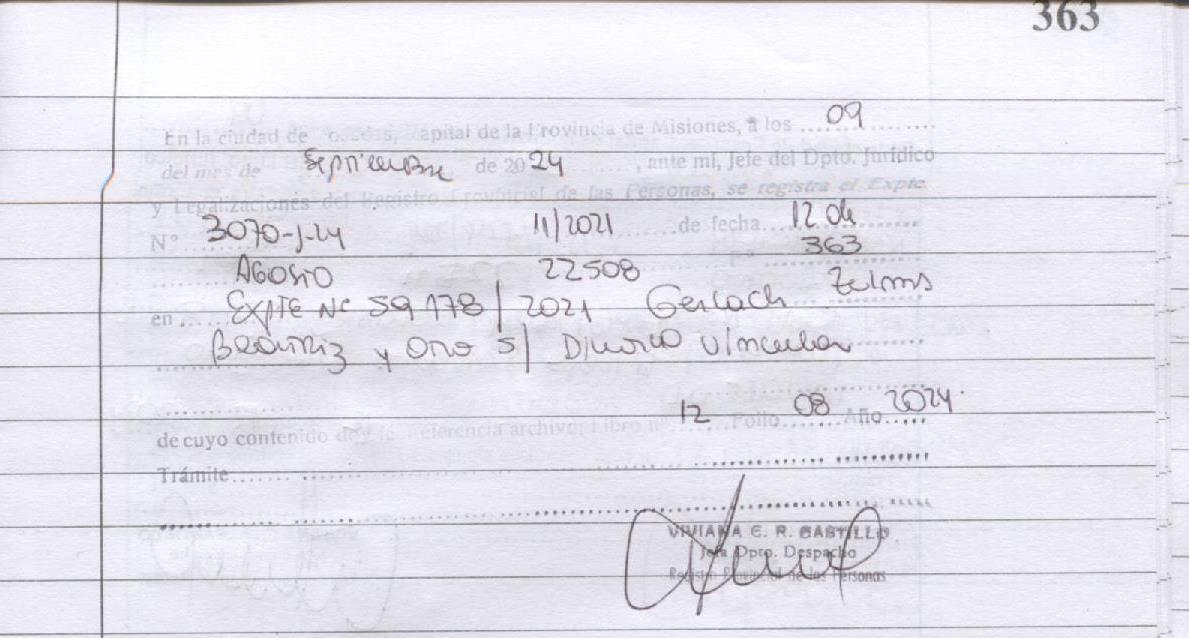 363
En la ciudad de Posadas, Capital de la Provincia de Misiones, a los 09
del mes de Septiembre de 2024, ante mí, Jefe del Dpto. Jurídico
y Legalizaciones del Registro Provincial de las Personas, se registra el Expte
N° 3070-J-24 11/2021 de fecha 12 de
363
Agosto 22508
en Expte Nº 59178/2021 Gerlach Zulma
Beatriz y Otro s/ Divorcio Vincular
12 08 2024.
de cuyo contenido doy fe. Referencia archivo: Libro nº Folio Año
Trámite
VIVIANA E. R. CASTILLO
Jefa Dpto. Despacho
Registro Provincial de las Personas